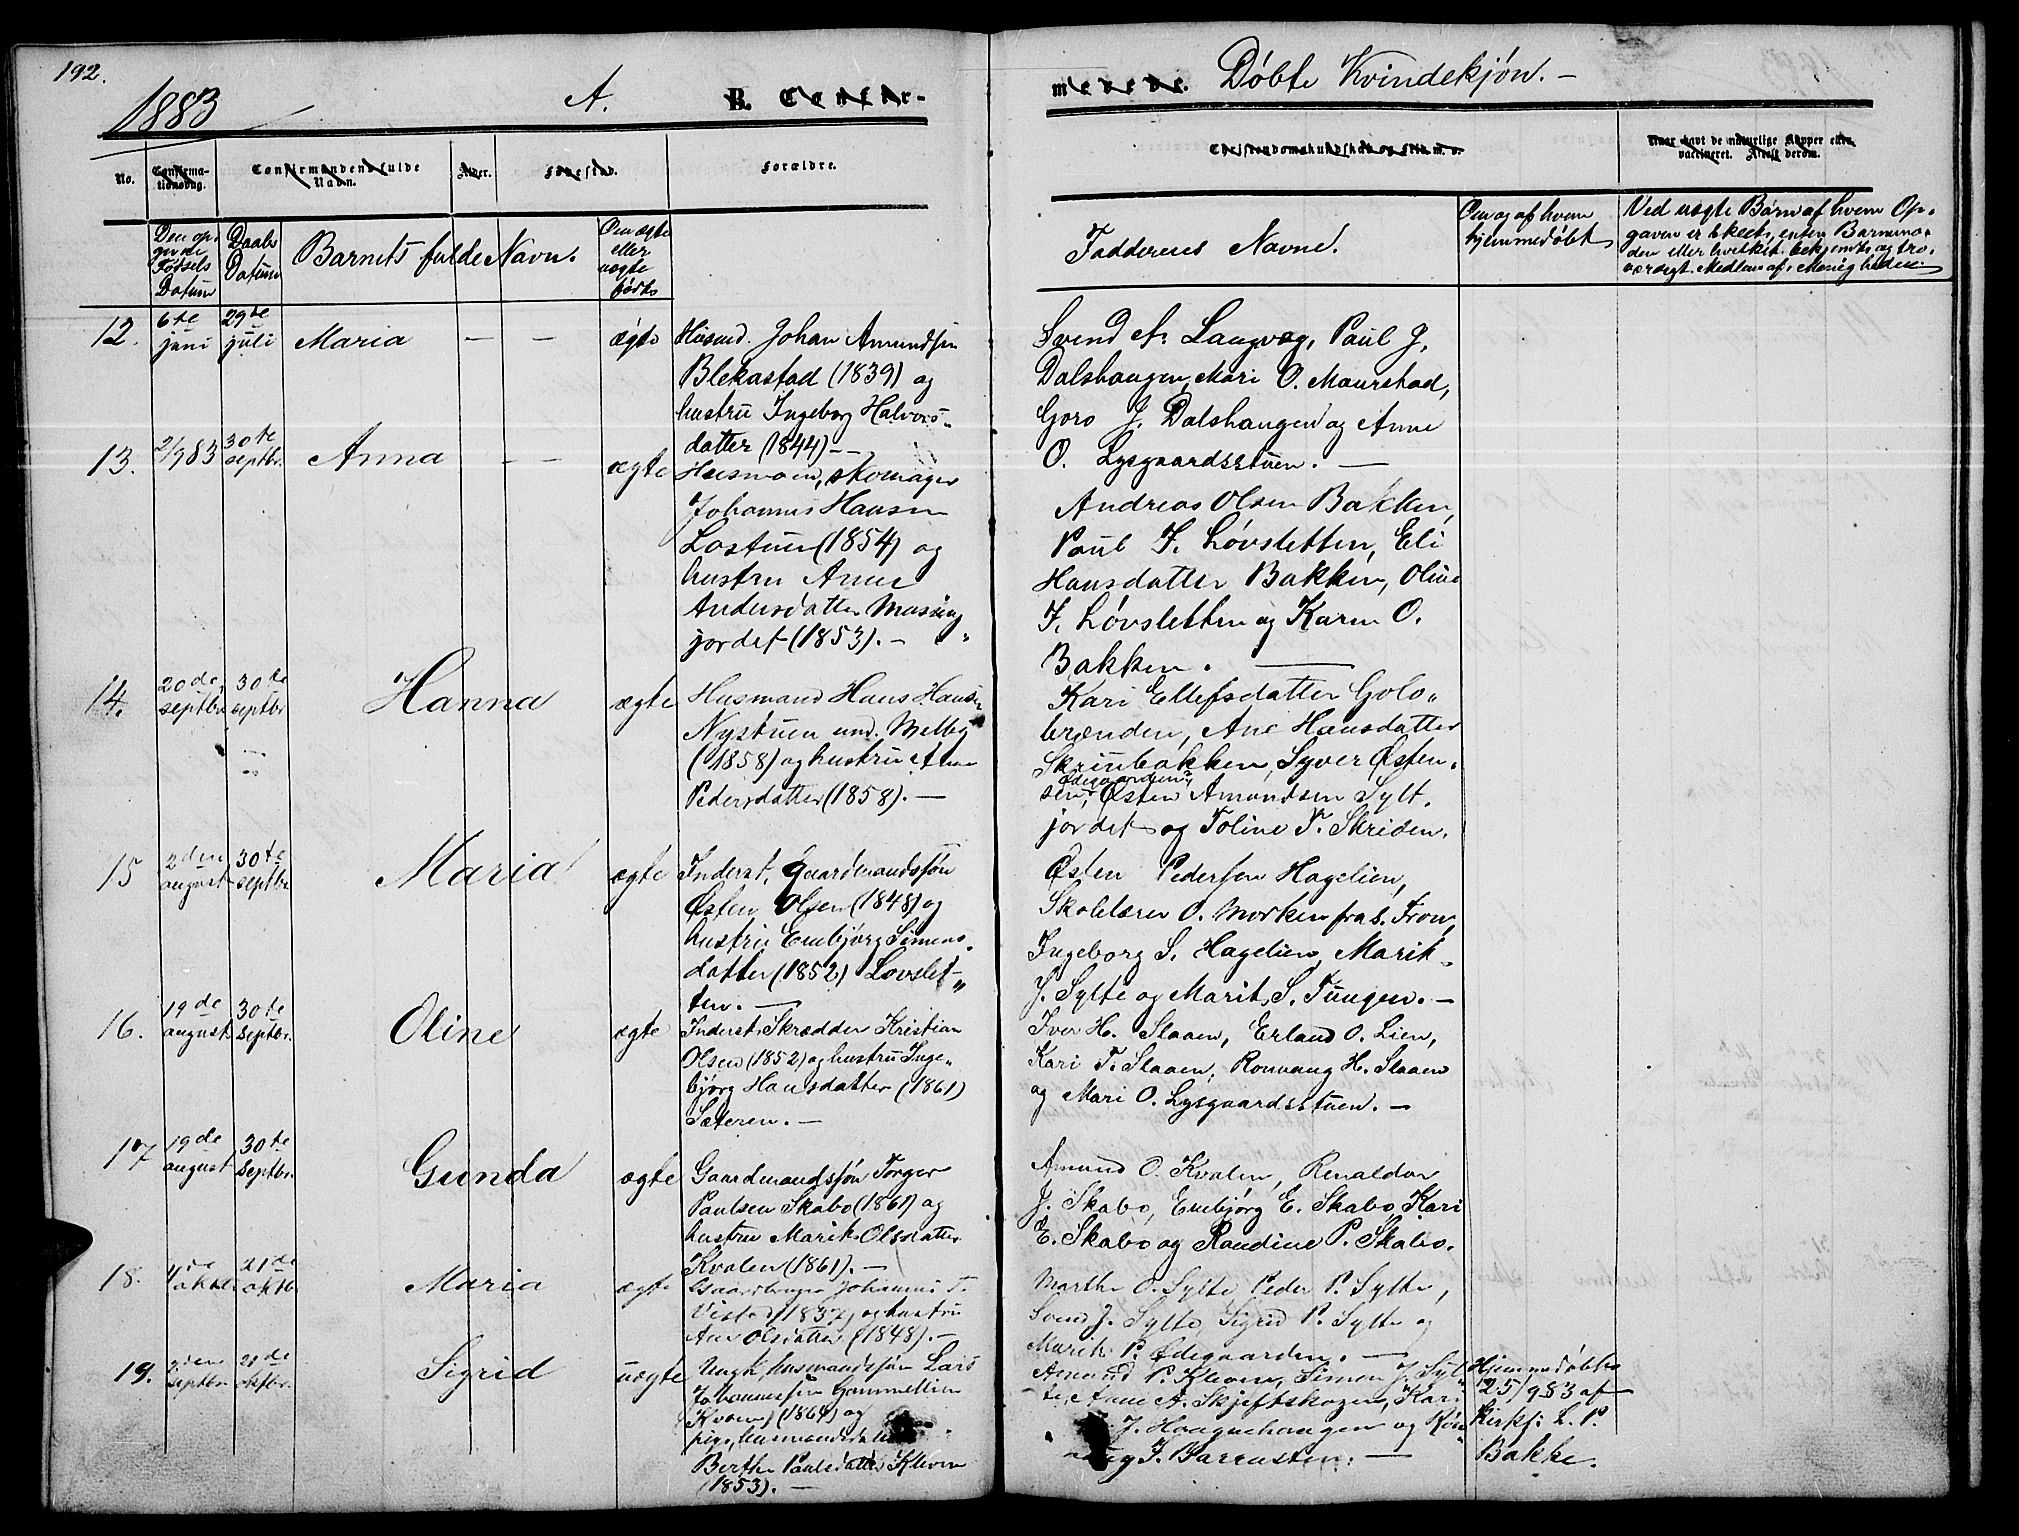 192.
1883
A.
B. Confir-
No.
Confirma-
tionsdag.
Confirmandens fulde
Navn.
Alder.
Fødested.
Forældre.
Den op-
givne
Fødsels
Datum
Daabs
Datum
Barnets fulde Navn.
Om ægte
eller
uægte
født
12.
6te
juni
29de
juli
Maria — —
ægte
Husmd. Johan Amundsen
Blekastad (1839) og
hustru Ingeborg Halvors-
datter (1844) —
13.
2/9 83
30te
septbr.
Anna — —
ægte
Husmand, skomager
Johannes Hansen
Lostuen (1854) og
hustru Anne
Andersdatter Musing
jordet (1853). —
14.
20de
septbr.
30te
septbr
Hanna
ægte
Husmand Hans Hansen
Nystuen und. Melby
(1858) og hustru Anne
Pedersdatter (1858). —
15
2den
august
30te
septbr
Maria
ægte
Inderst, Gaardmandssøn
Østen Olsen (1848) og
hustru Embjørg Simens-
datter (1852) Løvslet-
ten. —
16.
19de
august
30te
Septbr.
Oline
ægte
Inderst, Skrædder Kristian
Olsen (1852) og hustru Inge-
bjørg Hansdatter (1861)
Sæteren. —
17
19de
august
30te
Septbr.
Gunda
ægte
Gaardmandssøn Torger
Paulsen Skabo (1861) og
hustru Marit Olsdatter
Kvalen (1861). —
18.
4de
oktbr
21de
oktbr.
Maria
ægte
Gaardbruger Johannes T.
Vistad (1837) og hustru
Ane Olsdatter (1848). —
19.
2den
septbr.
21de
oktbr.
Sigrid
uægte
Ungk., husmandssøn Lars
Johannessen Gammellien
Kvam) (1864) og
pige, husmandsdatter
Berthe Paulsdatter Kleven
(1853). —
merede.
Døbte Kvindekjøn. —
Christendomskundskab og Flid m. v.
Naar havt de naturlige Kopper eller
vaccineret. Attest derom.
Faddernes Navne.
Om og af hvem
hjemmedøbt
Ved uægte Børn af hvem Op-
gaven er skeet, enten Barnemo-
der eller hvilket bekjendt og tro-
værdigt Medlem af Menigheden.
Svend A. Langvæg, Paul J.
Dalshaugen, Mari O. Maurstad,
Goro J. Dalshaugen og Anne
O. Lysgaardsstuen. —
Andreas Olsen Bakken,
Paul J. Løvsletten, Eli
Hansdatter Bakken, Oline
J. Løvsletten og Karen O.
Bakken. —
Kari Ellefsdatter Golo-
brænden, Ane Hansdatter
Skriubakken, Syver Østen-
Ødegaarden
sen, Østen Amundsen Sylt-
jordet og Toline T. Skriden.
Østen Pedersen Hagelien,
Skolelærer O. Morken fra S. Fron,
Ingeborg S. Hagelien, Marit
J. Sylte og Marit S. Tungen. —
Iver H. Slaaen, Erland O. Lien,
Kari T. Slaaen, Ronnaug H. Slaaen
og Mari O. Lysgaardsstuen. —
Amund O. Kvalen, Renaldor
J. Skabo, Embjørg E. Skabo, Kari
E. Skabo og Randine P. Skabo.
Marthe O. Sylte, Peder P. Sylte,
Svend J. Sylte, Sigrid P. Sylte og
Marit P. Ødegaarden. —
Amund P. Kleven, Simon J. Syl-
te, Anne A. Skjeftskogen, Kari
J. Haaguehaugen og Røn-
naug J. Barrusten. —
Hjemmedøbt
25/9 83 af
Kirksj. L. P.
Bakke.